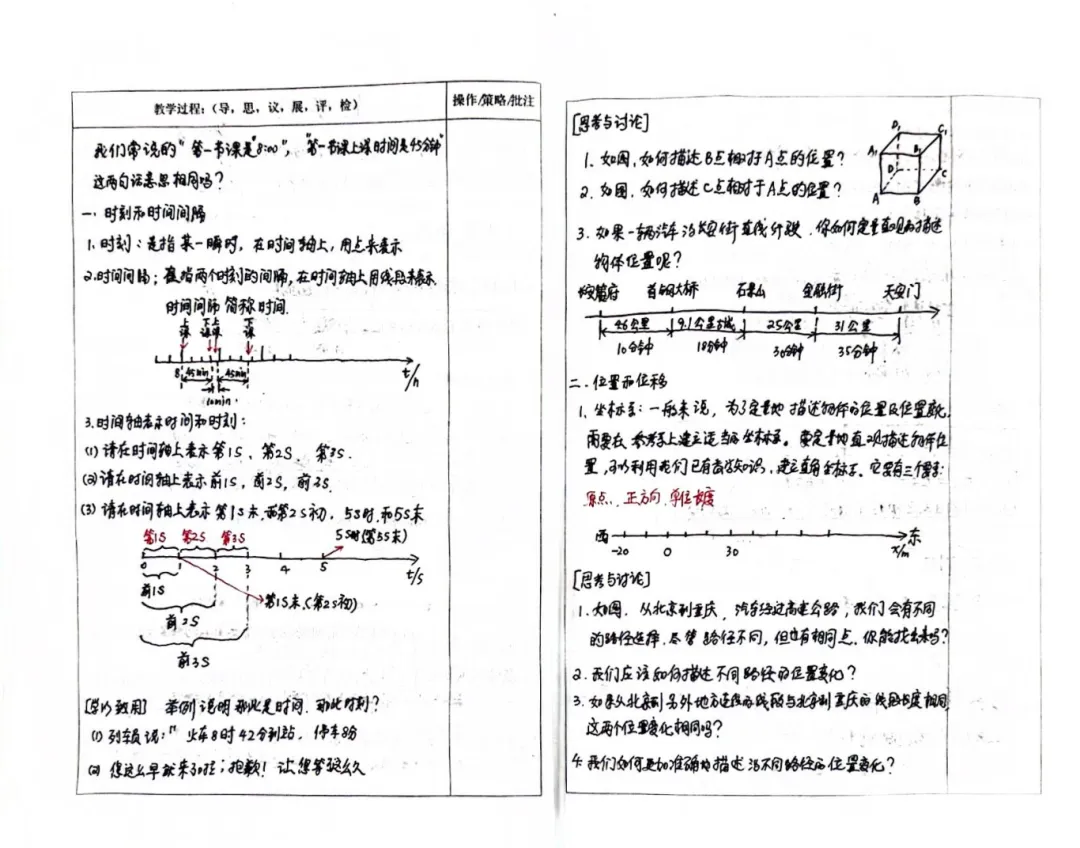 教学过程:(导,思,议,展,评,检)
操作/策略/批注
我们常说的"第一节课是"8:00","第一节课上课时间是45分钟"
这两句话意思相同吗?
一、时刻和时间间隔
1.时刻:是指某一瞬时,在时间轴上,用点来表示
2.时间间隔:是指两个时刻的间隔,在时间轴上用线段来表示
时间间隔简称时间.
上课 下课 上课 下课
8 45min 45min
10min
t/h
3.时间轴表示时间和时刻:
(1)请在时间轴上表示第1S、第2S、第3S.
(2)请在时间轴上表示前1S,前2S,前3S.
(3)请在时间轴上表示第1S末,第2S初,5S时,和5S末
第1S 第2S 第3S
5S时(第5S末)
0 1 2 3 4 5
t/s
前1S
第1S末(第2S初)
前2S
前3S
[学以致用] 举例说明那些是时间、那些时刻?
(1)列车员说:"火车8时42分到站,停车8分
(2)您这么早就来啦;抱歉!让您等这么久
[思考与讨论]
1.如图,如何描述B点相对于A点的位置?
2.如图,如何描述C点相对于A点的位置?
D₁ C₁
A₁ B₁
D C
A B
3.如果一辆汽车沿长安街直线行驶,你如何定量直观的描述
物体位置呢?
首钢大桥 石景山 金融街 天安门
46公里 9.1公里 25公里 31公里
10分钟 18分钟 30分钟 35分钟
二、位置和位移
1.坐标系:一般来说,为了定量地描述物体的位置及位置变化,
需要在参考系上建立适当的坐标系。要定量地直观描述物体位
置,可以利用我们已有的数学知识,建立直角坐标系。它要有三个要素:
原点、正方向、单位长度
西 东
-20 0 30 x/m
[思考与讨论]
1.如图,从北京到重庆,汽车经过高速公路,我们会有不同
的路径选择.尽管路径不同,但也有相同点,你能找出来吗?
2.我们应该如何描述不同路径的位置变化?
3.如果从北京到另外地方连线的线段与北京到重庆的线段长度相同
这两个位置变化相同吗?
4.我们如何更加准确地描述沿不同路径的位置变化?